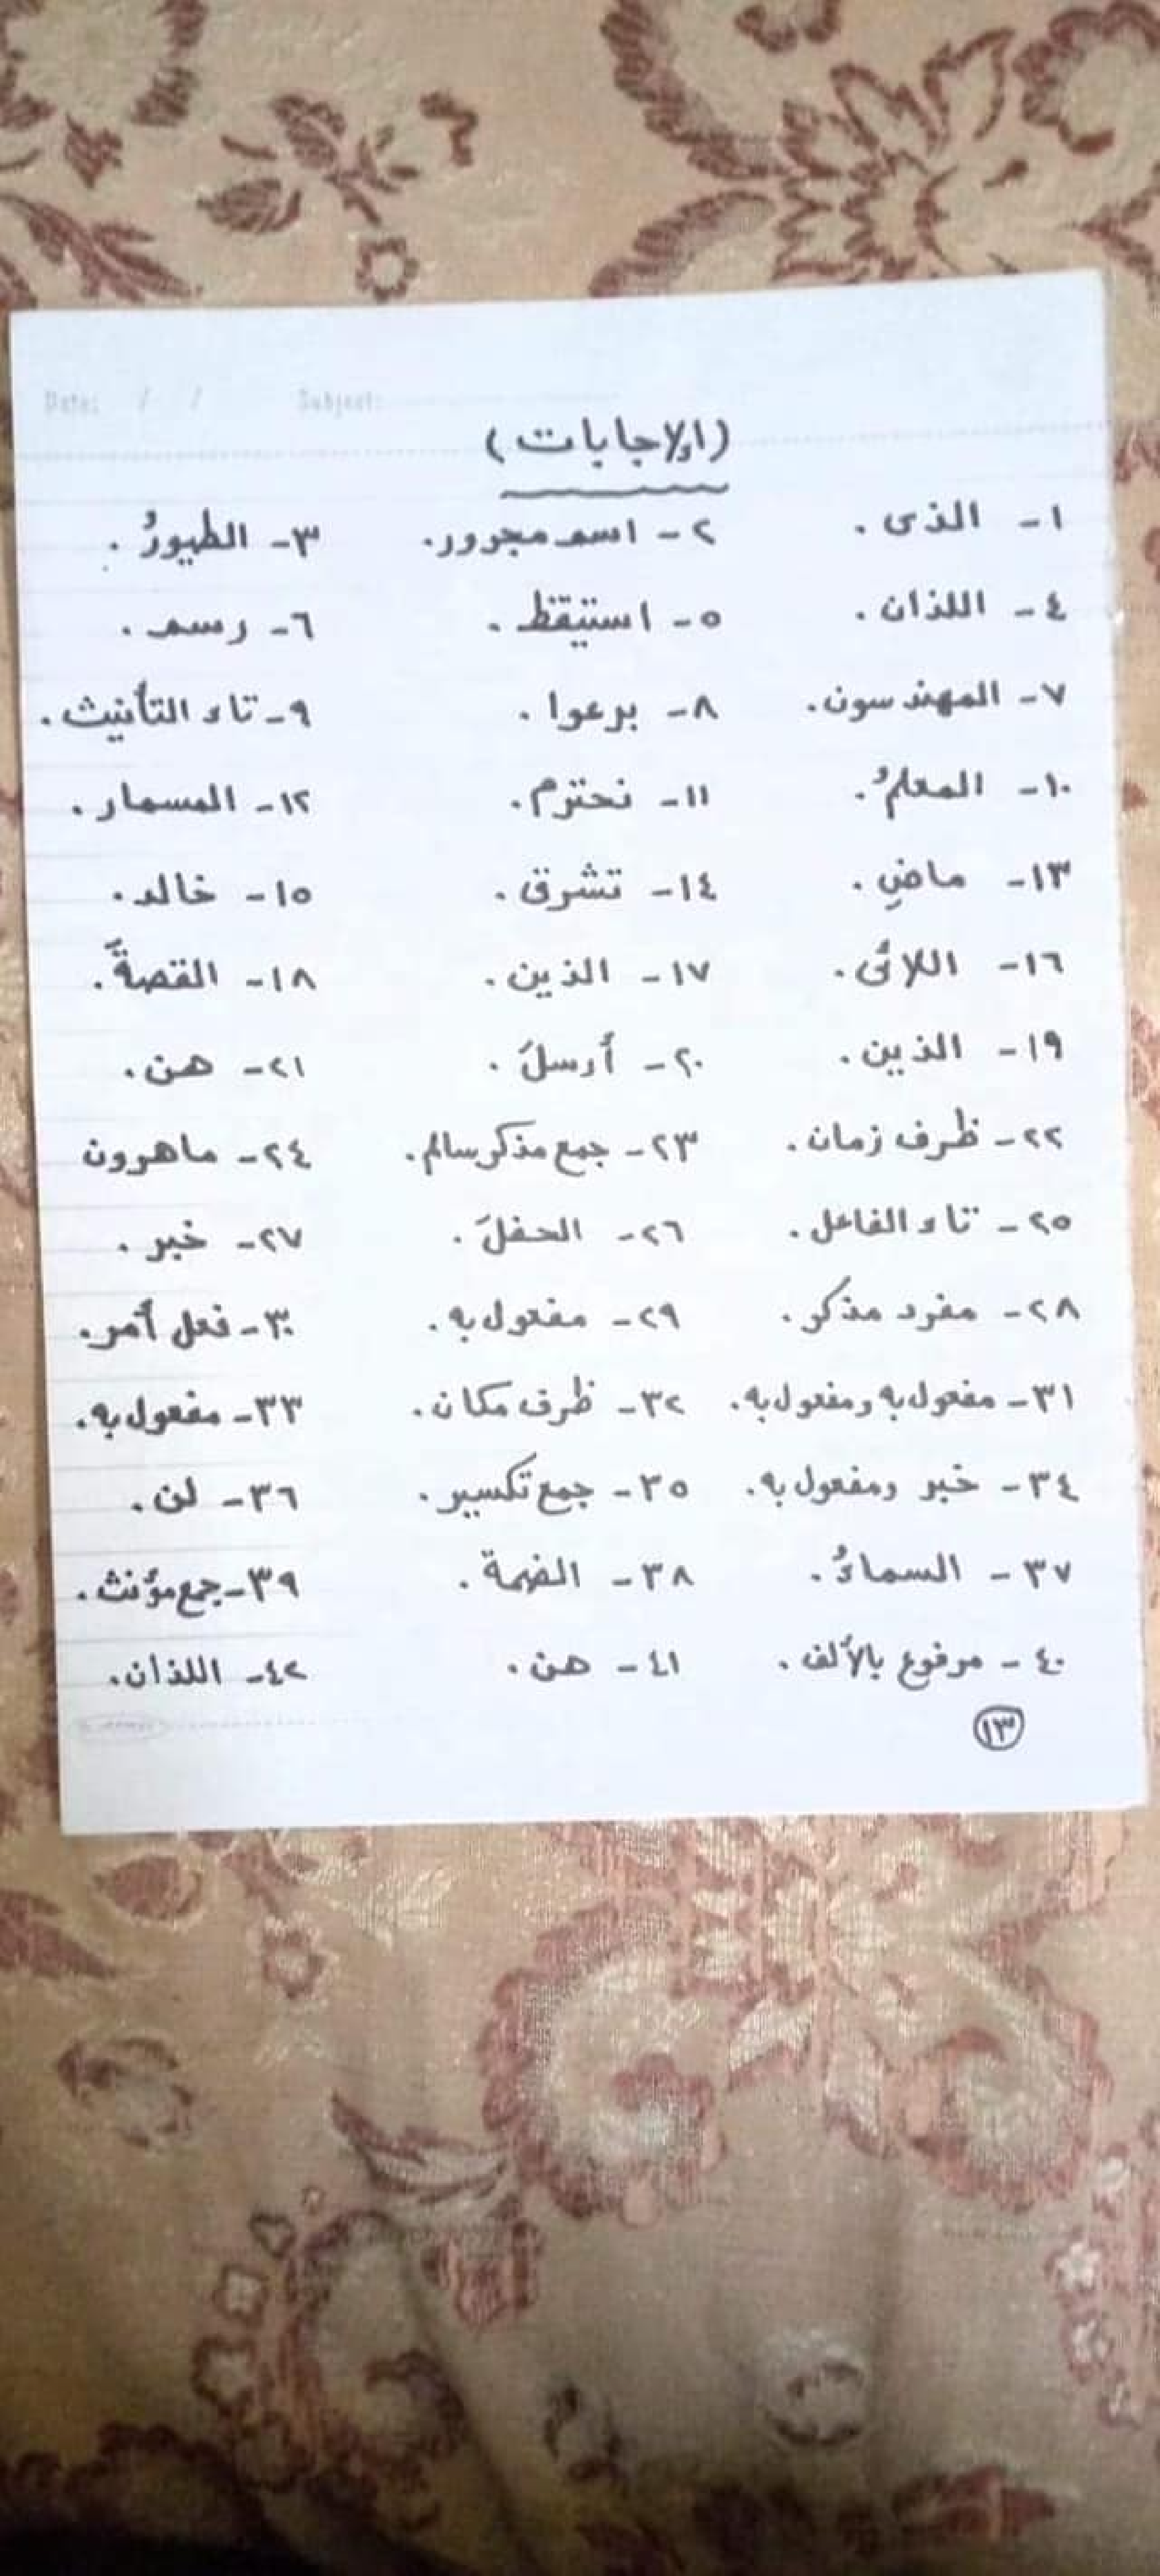 Date: / / Subject:
(الإجابات)
١- الذى . ٢- اسم مجرور. ٣- الطيورُ .
٤- اللذان. ٥- استيقظ . ٦- رسم .
٧- المهندسون. ٨- برعوا . ٩- تاء التأنيث .
١٠- المعلمُ. ١١- نحترم. ١٢- المسمار .
١٣- ماضٍ . ١٤- تشرق . ١٥- خالد.
١٦- اللائى. ١٧- الذين . ١٨- القصةَ .
١٩- الذين . ٢٠- أرسلَ . ٢١- هن .
٢٢- ظرف زمان . ٢٣- جمع مذكر سالم. ٢٤- ماهرون
٢٥- تاء الفاعل . ٢٦- الحفلَ . ٢٧- خبر .
٢٨- مفرد مذكر. ٢٩- مفعول به . ٣٠- فعل أمر.
٣١- مفعول به ومفعول به. ٣٢- ظرف مكان . ٣٣- مفعول به.
٣٤- خبر ومفعول به . ٣٥- جمع تكسير . ٣٦- لن .
٣٧- السماءُ . ٣٨- الضمة . ٣٩- جمع مؤنث .
٤٠- مرفوع بالألف . ٤١- هن . ٤٢- اللذان.
١٣